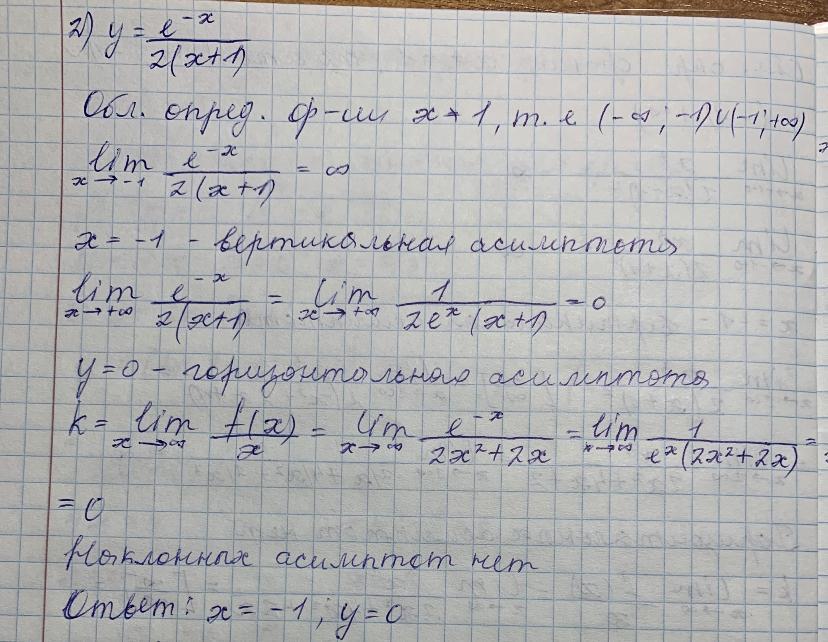 2) y = e^{-x} / 2(x+1)
Обл. опред. ф-ии x ≠ 1, т. е (-∞; -1) ∪ (-1; +∞)
lim x→-1 e^{-x} / 2(x+1) = ∞
x = -1 - вертикальная асимптота
lim x→+∞ e^{-x} / 2(x+1) = lim x→+∞ 1 / 2e^x (x+1) = 0
y = 0 - горизонтальная асимптота
k = lim x→∞ f(x) / x = lim x→∞ e^{-x} / 2x² + 2x = lim x→∞ 1 / e^x (2x² + 2x) =
= 0
Наклонных асимптот нет
Ответ: x = -1; y = 0